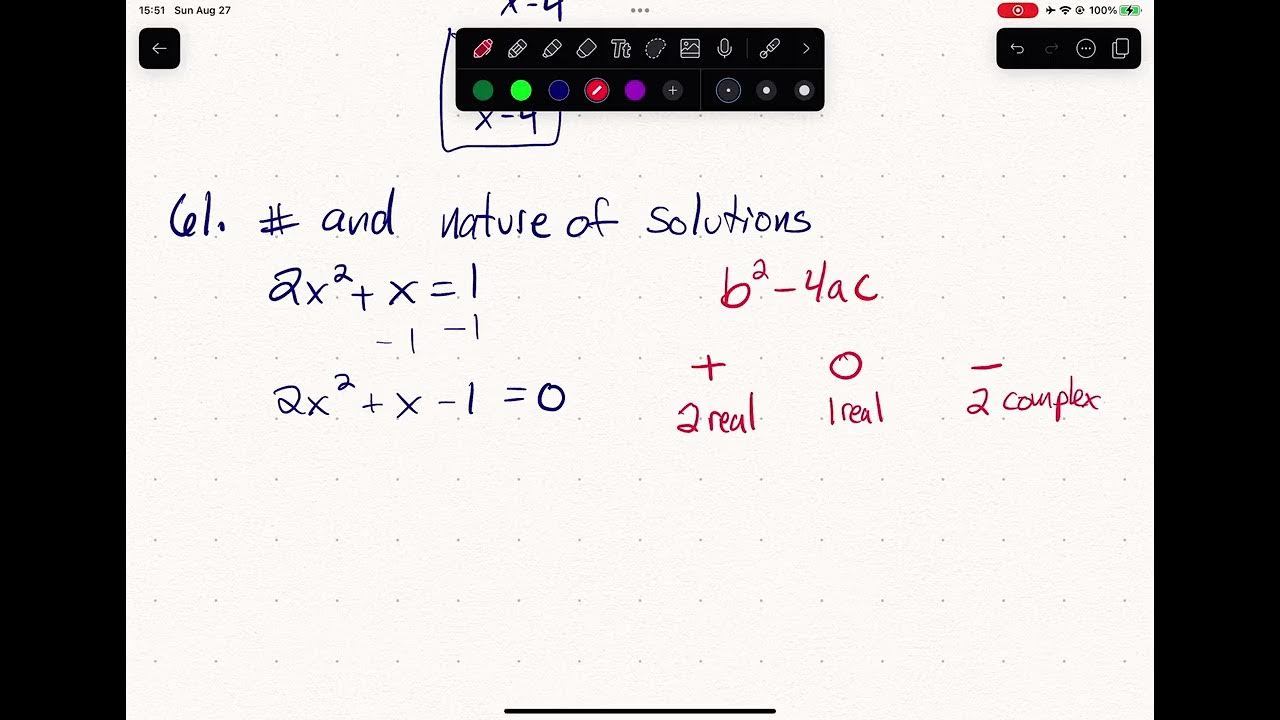 15:51 Sun Aug 27
100%
x-4
Tt
x-4
61. # and nature of solutions
2x² + x = 1
b² - 4ac
-1 -1
+ 0 -
2x² + x - 1 = 0
2 real 1 real 2 complex